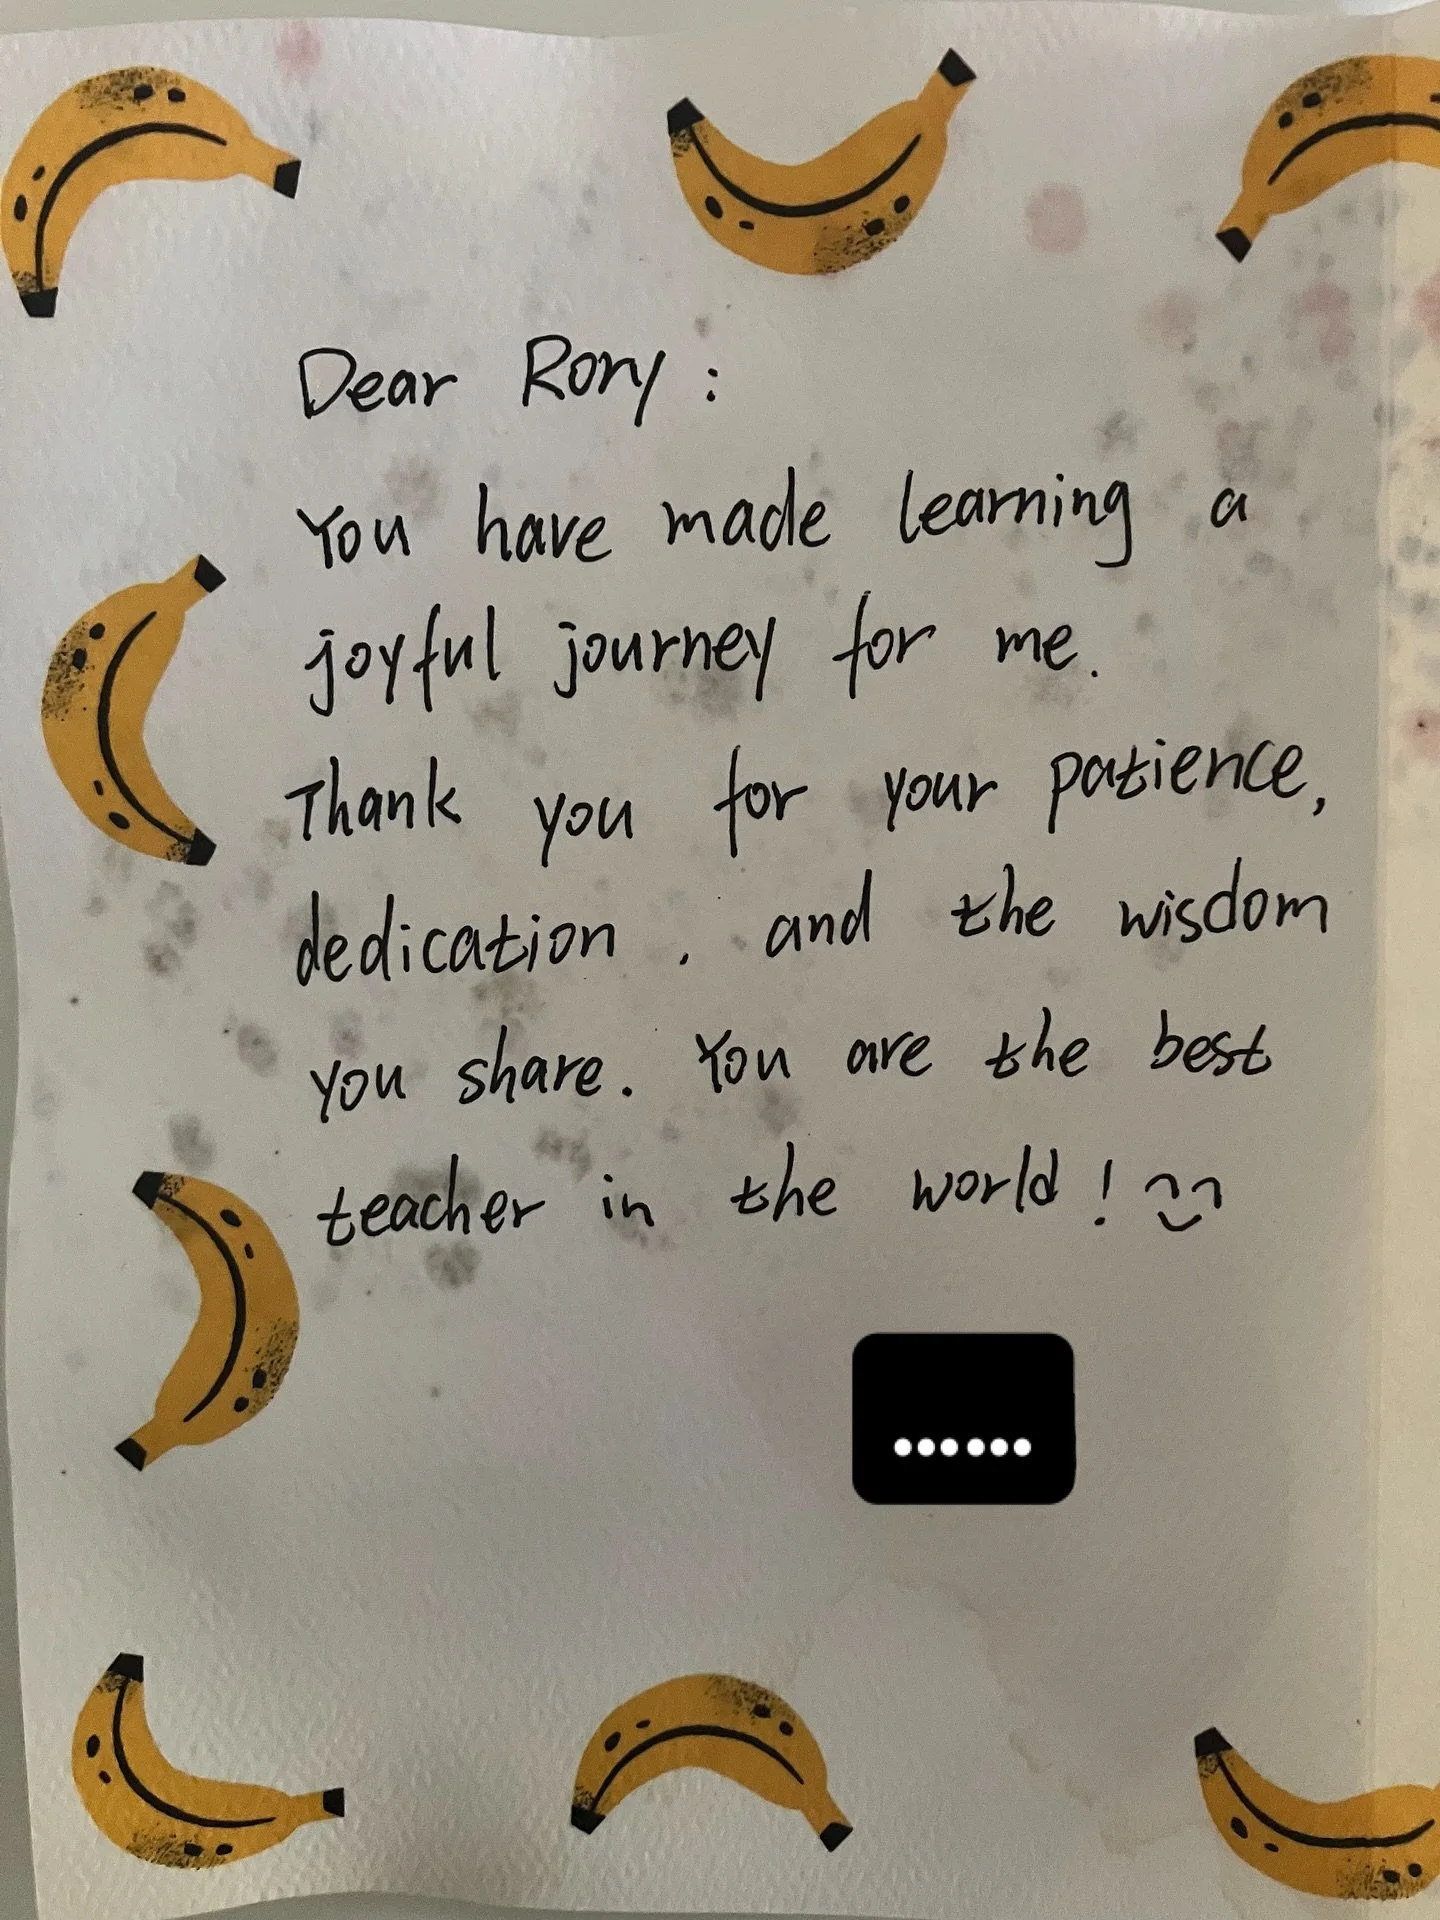 Dear Rory :
You have made learning a
joyful journey for me.
Thank you for your patience,
dedication , and the wisdom
you share. You are the best
teacher in the world !